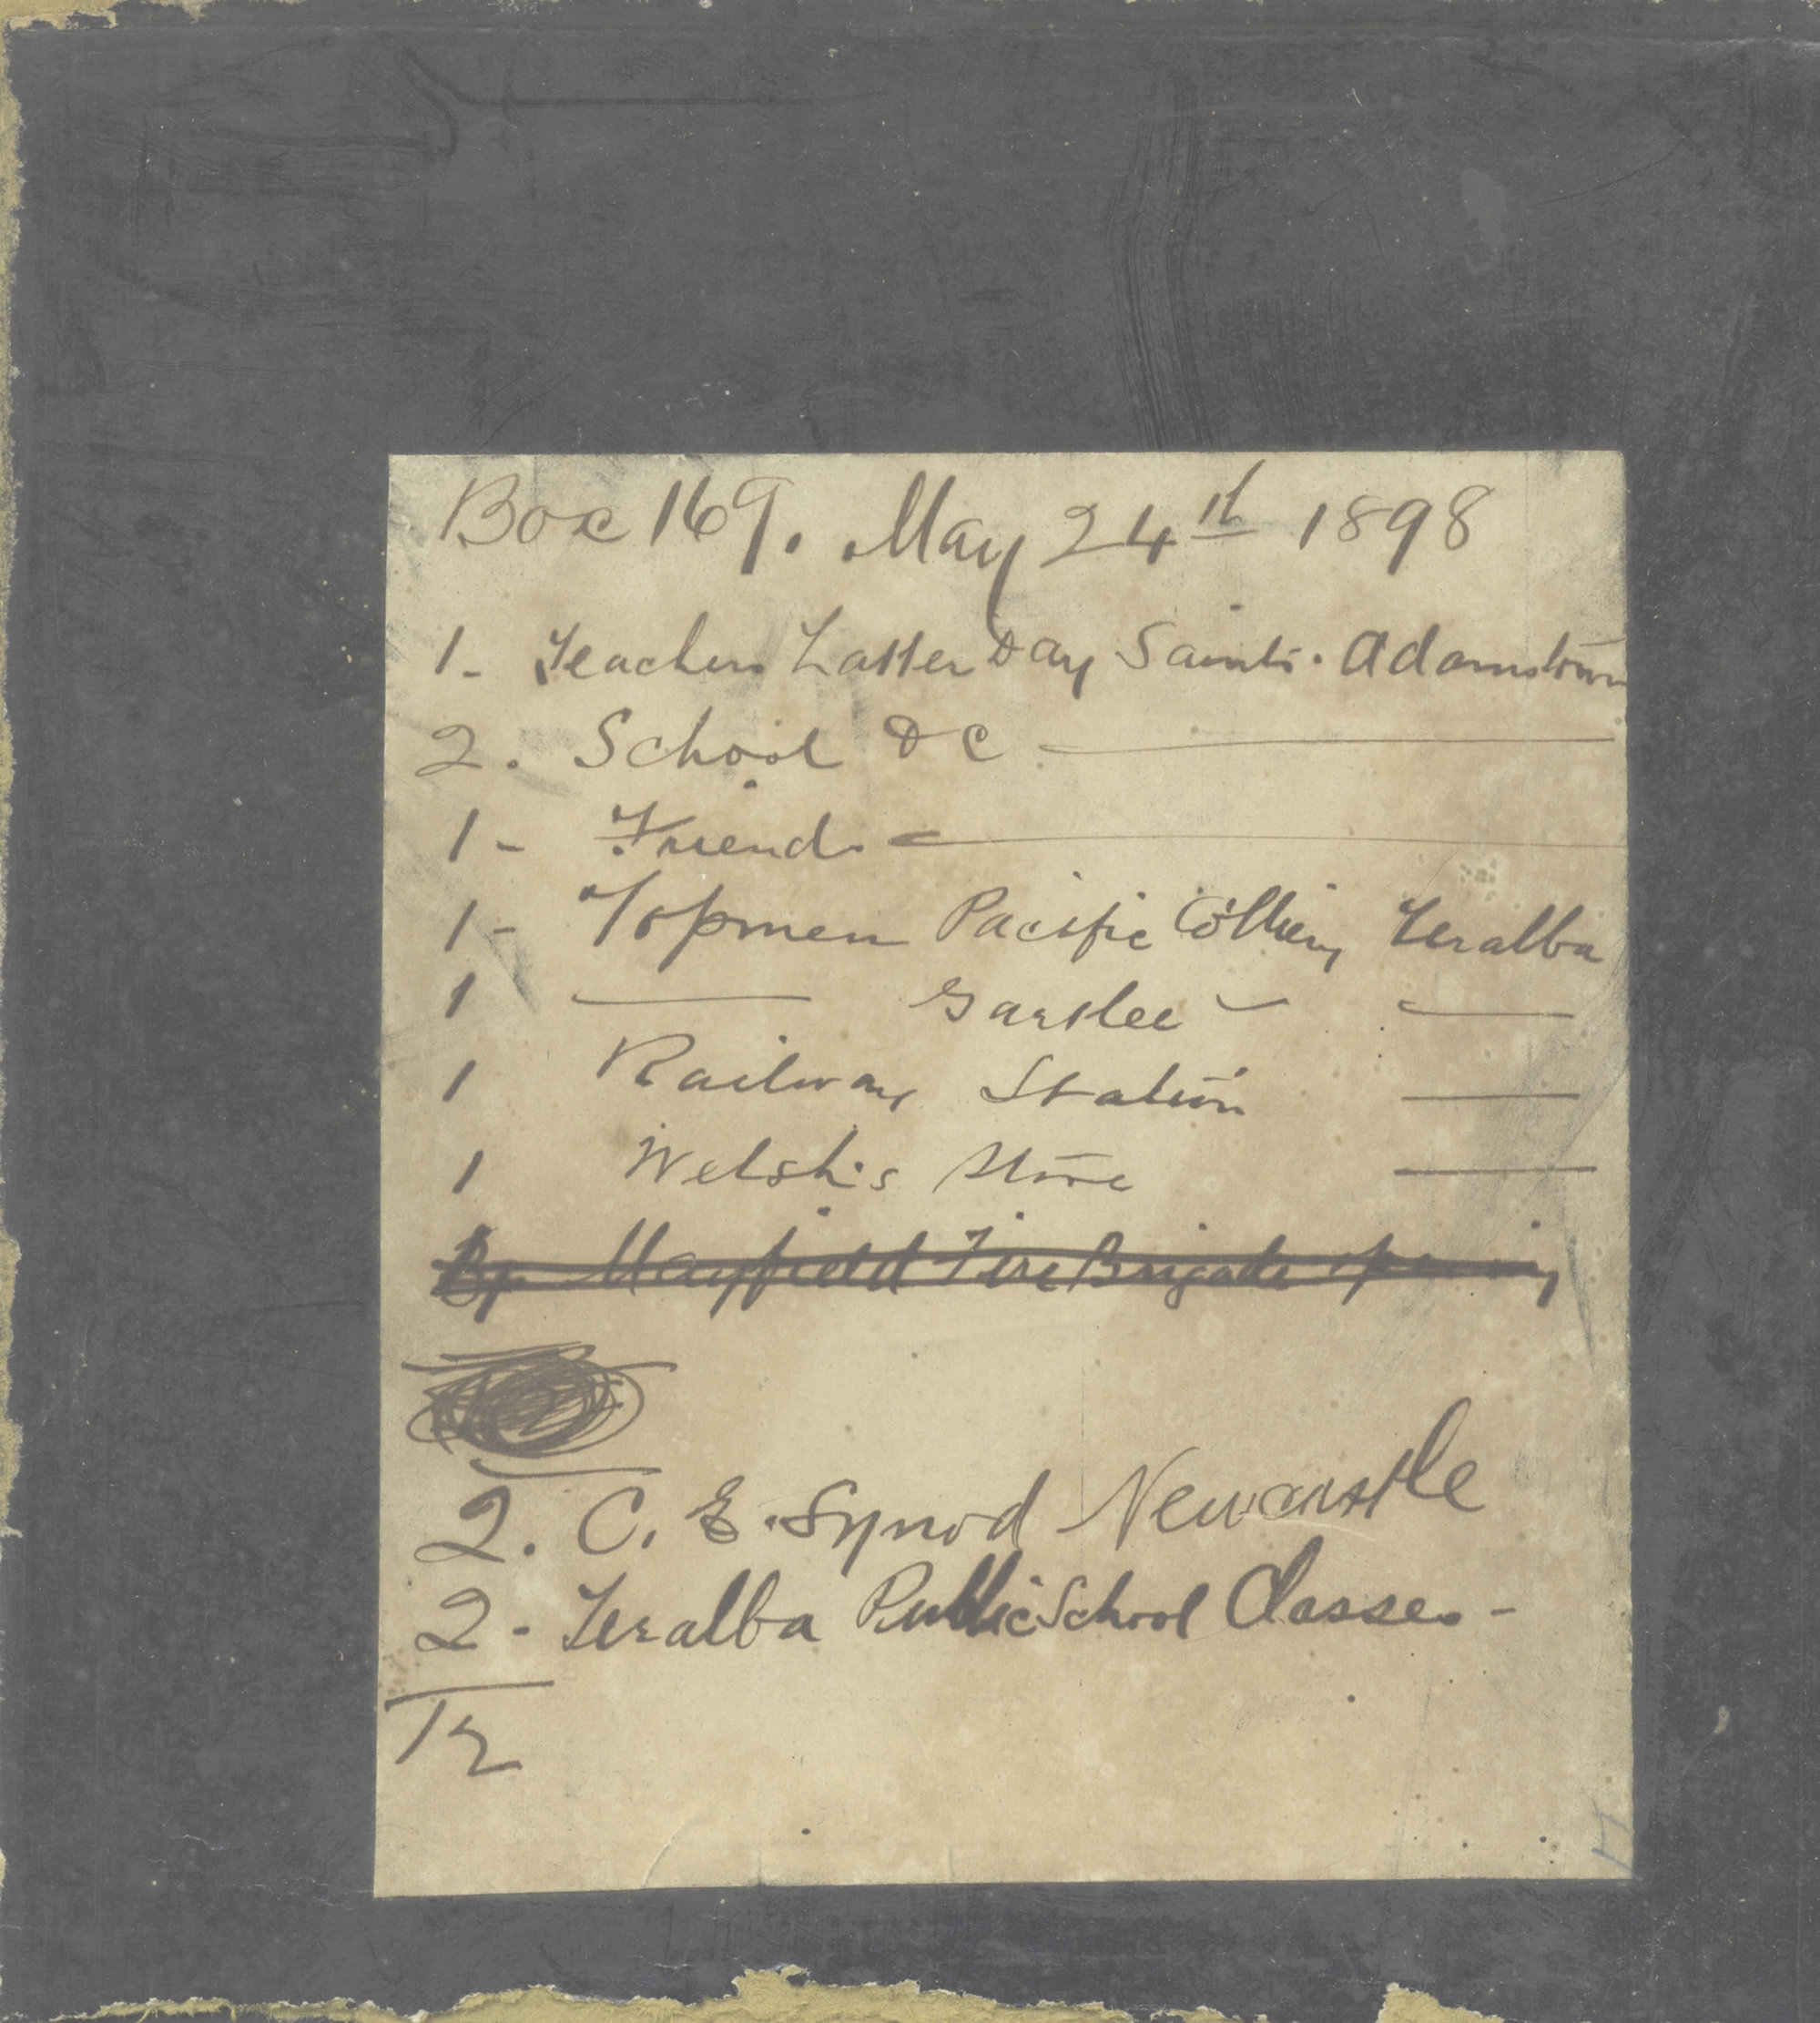 Box 169. May 24th 1898
1 - Teachers Latter Day Saints. Adamstown
2. School D C ———
1 - Friends ———
1 - Topmen Pacific Colliery Teralba
1 ——— Gartlee ~ ———
1 Railway Station ———
1 Welsh's Store ———
By Mayfield Fire Brigade opening
2. C. E. Synod Newcastle
2 - Teralba Public School Classes -
12